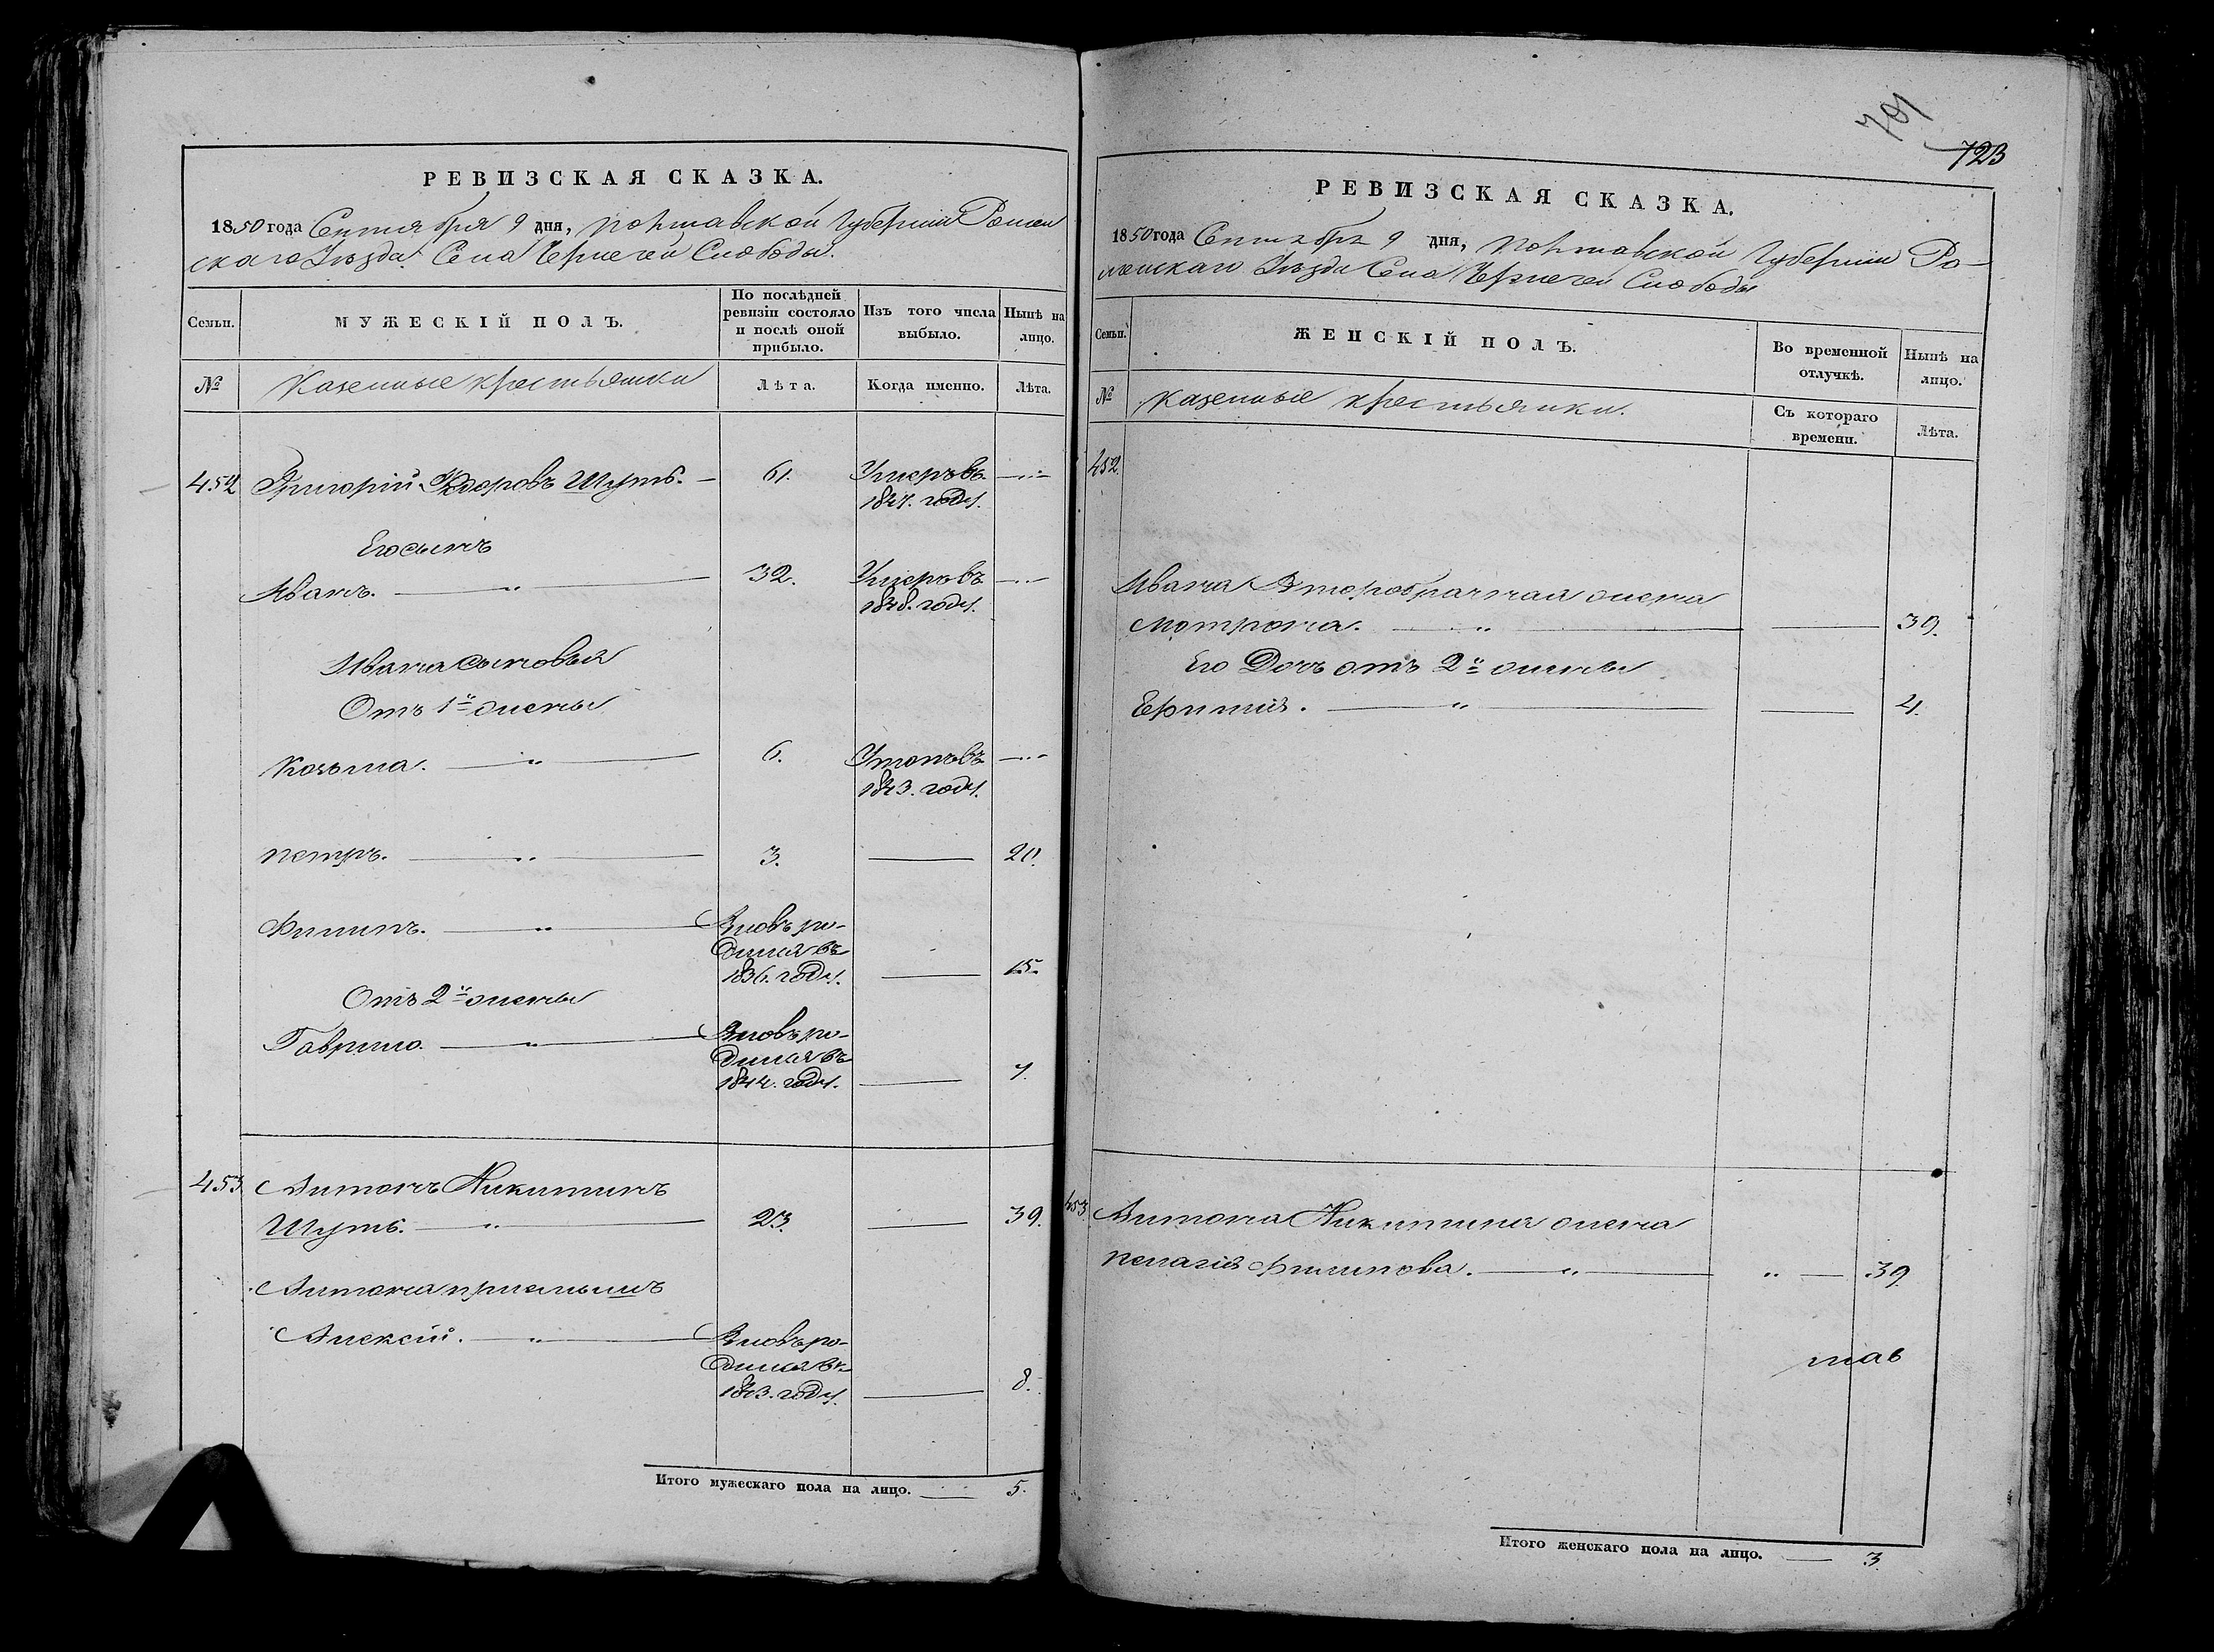 РЕВИЗСКАЯ СКАЗКА.
1850 года Сентября 9 дня, Полтавской Губернии Ромен
скаго Уѣзда Села Чернечей Слободы.
Семьи.
МУЖЕСКІЙ ПОЛЪ.
По послѣдней ревизіи состояло и послѣ оной прибыло.
Изъ того числа выбыло.
Нынѣ на лицо.
№
Казенные крестьянки
Лѣта.
Когда именно.
Лѣта.
452 Григорій Ѳедоровъ Шуть. — 61. Умеръ въ
1847. году.
Его сынъ
Иванъ. — " — 32. Умеръ въ
1848. году.
Ивана сыновья
Отъ 1й жены
Козьма. — " — 6. Утопъ въ
1843. году.
Петръ. — " — 3. — 20.
Филипъ. — " — Вновь ро-
дился въ
1836. году. — 15.
Отъ 2й жены
Гаврило. — " — Вновь ро-
дился въ
1844. году. — 7.
453 Антонъ Никитинъ
Шуть. — " — 23. — 39.
Антона приемышъ
Алексій. — " — Вновь ро-
дился въ
1843. году. — 8.
Итого мужескаго пола на лицо. — 5.
701
723
РЕВИЗСКАЯ СКАЗКА.
1850 года Сентября 9 дня, Полтавской Губернии Ро-
менскаго Уѣзда Села Чернечей Слободы
Семьи.
ЖЕНСКІЙ ПОЛЪ.
Во временной отлучкѣ.
Нынѣ на лицо.
№
Казенные крестьянки.
Съ котораго времени.
Лѣта.
452.
Ивана Второбрачная жена
Мотрона. — " — — 39.
Его Дочь отъ 2й жены
— " — — 4.
453. Антона Никитина жена
Пелагія Филипова. — " — " — 39.
Итого женскаго пола на лицо. — 3.